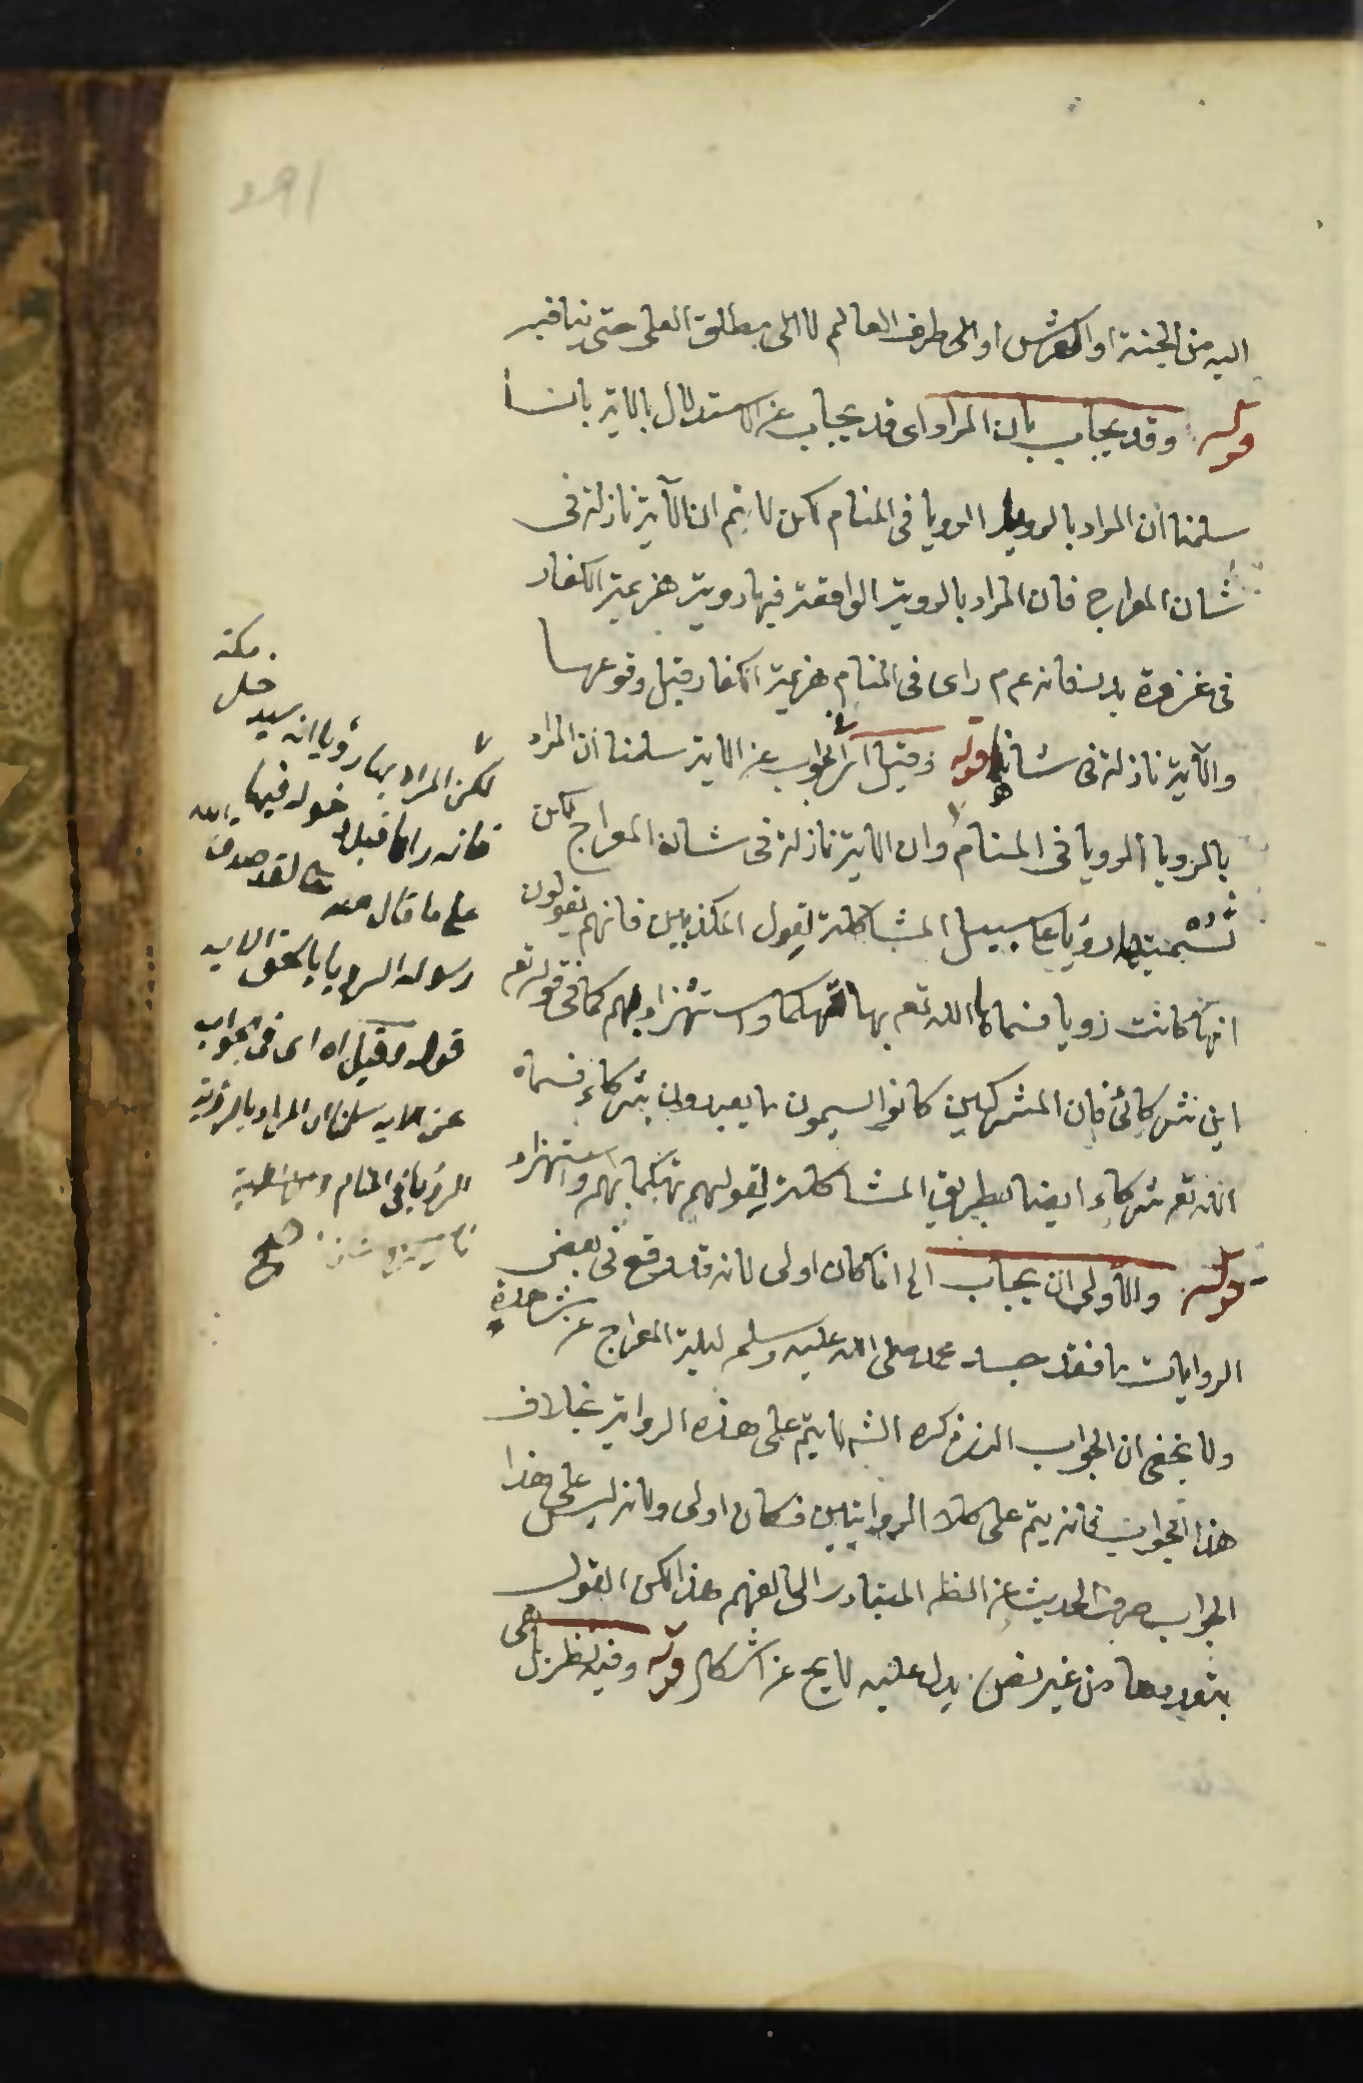 اليه من الجنة او العرش او الى طرف العالم لا الى مطلق العلى حتى ينافيه
قوله وقد يجاب بان المراد اى قد يجاب عن الاستدلال بالآية بانا
سلمنا ان المراد بالرويا الرويا فى المنام لكن لا يتم ان الآية نازلة فى
شان المعراج فان المراد بالروية الواقعة فيها روية هزيمة الكفار
فى غزوة بدر فانه عم م راى فى المنام هزيمة الكفار قبل وقوعها
والآية نازلة فى شانها قوله وقيل الجواب عن الآية سلمنا ان المراد
بالرويا الرويا فى المنام وان الآية نازلة فى شان المعراج لكن
تسميتها رؤيا على سبيل المشاكلة لقول المكذبين فانهم يقولون
انها كانت رويا فسماها الله تع بها تهكما واستهزاء بهم كما فى قوله تع
اين شركائى فان المشركين كانوا يسمون ما يعبدون بشركاء فسماه
الله تع شركاء ايضا بطريق المشاكلة لقولهم تهكما بهم واستهزاء
قوله والاولى ان يجاب الى انما كان اولى لانه قد وقع فى بعض
الروايات ما فقد جسد محمد صلى الله عليه وسلم ليلة المعراج عن شاهدة
ولا يخفى ان الجواب الذى ذكره الش لا يتم على هذه الرواية بخلاف
هذا الجواب فانه يتم على كلا الروايتين فكان اولى ولانه ليس على هذا
الجواب صرف الحديث عن الظه المتبادر الى الفهم هذا لكن القول
بتعددها من غير نص يدل عليه لا يخ عن اشكال قوله وفيه نظر بل هى
مكة
لكن المراد بها رؤيا انه سيدخل
فانه راها قبل دخوله فيها
على ما قال لقد صدق الله
رسوله الرويا بالحق الآيه
قوله وقيل اه اى فى الجواب
عن الآيه سلمنا ان المراد بالروية
الرؤيا فى المنام
صح
291